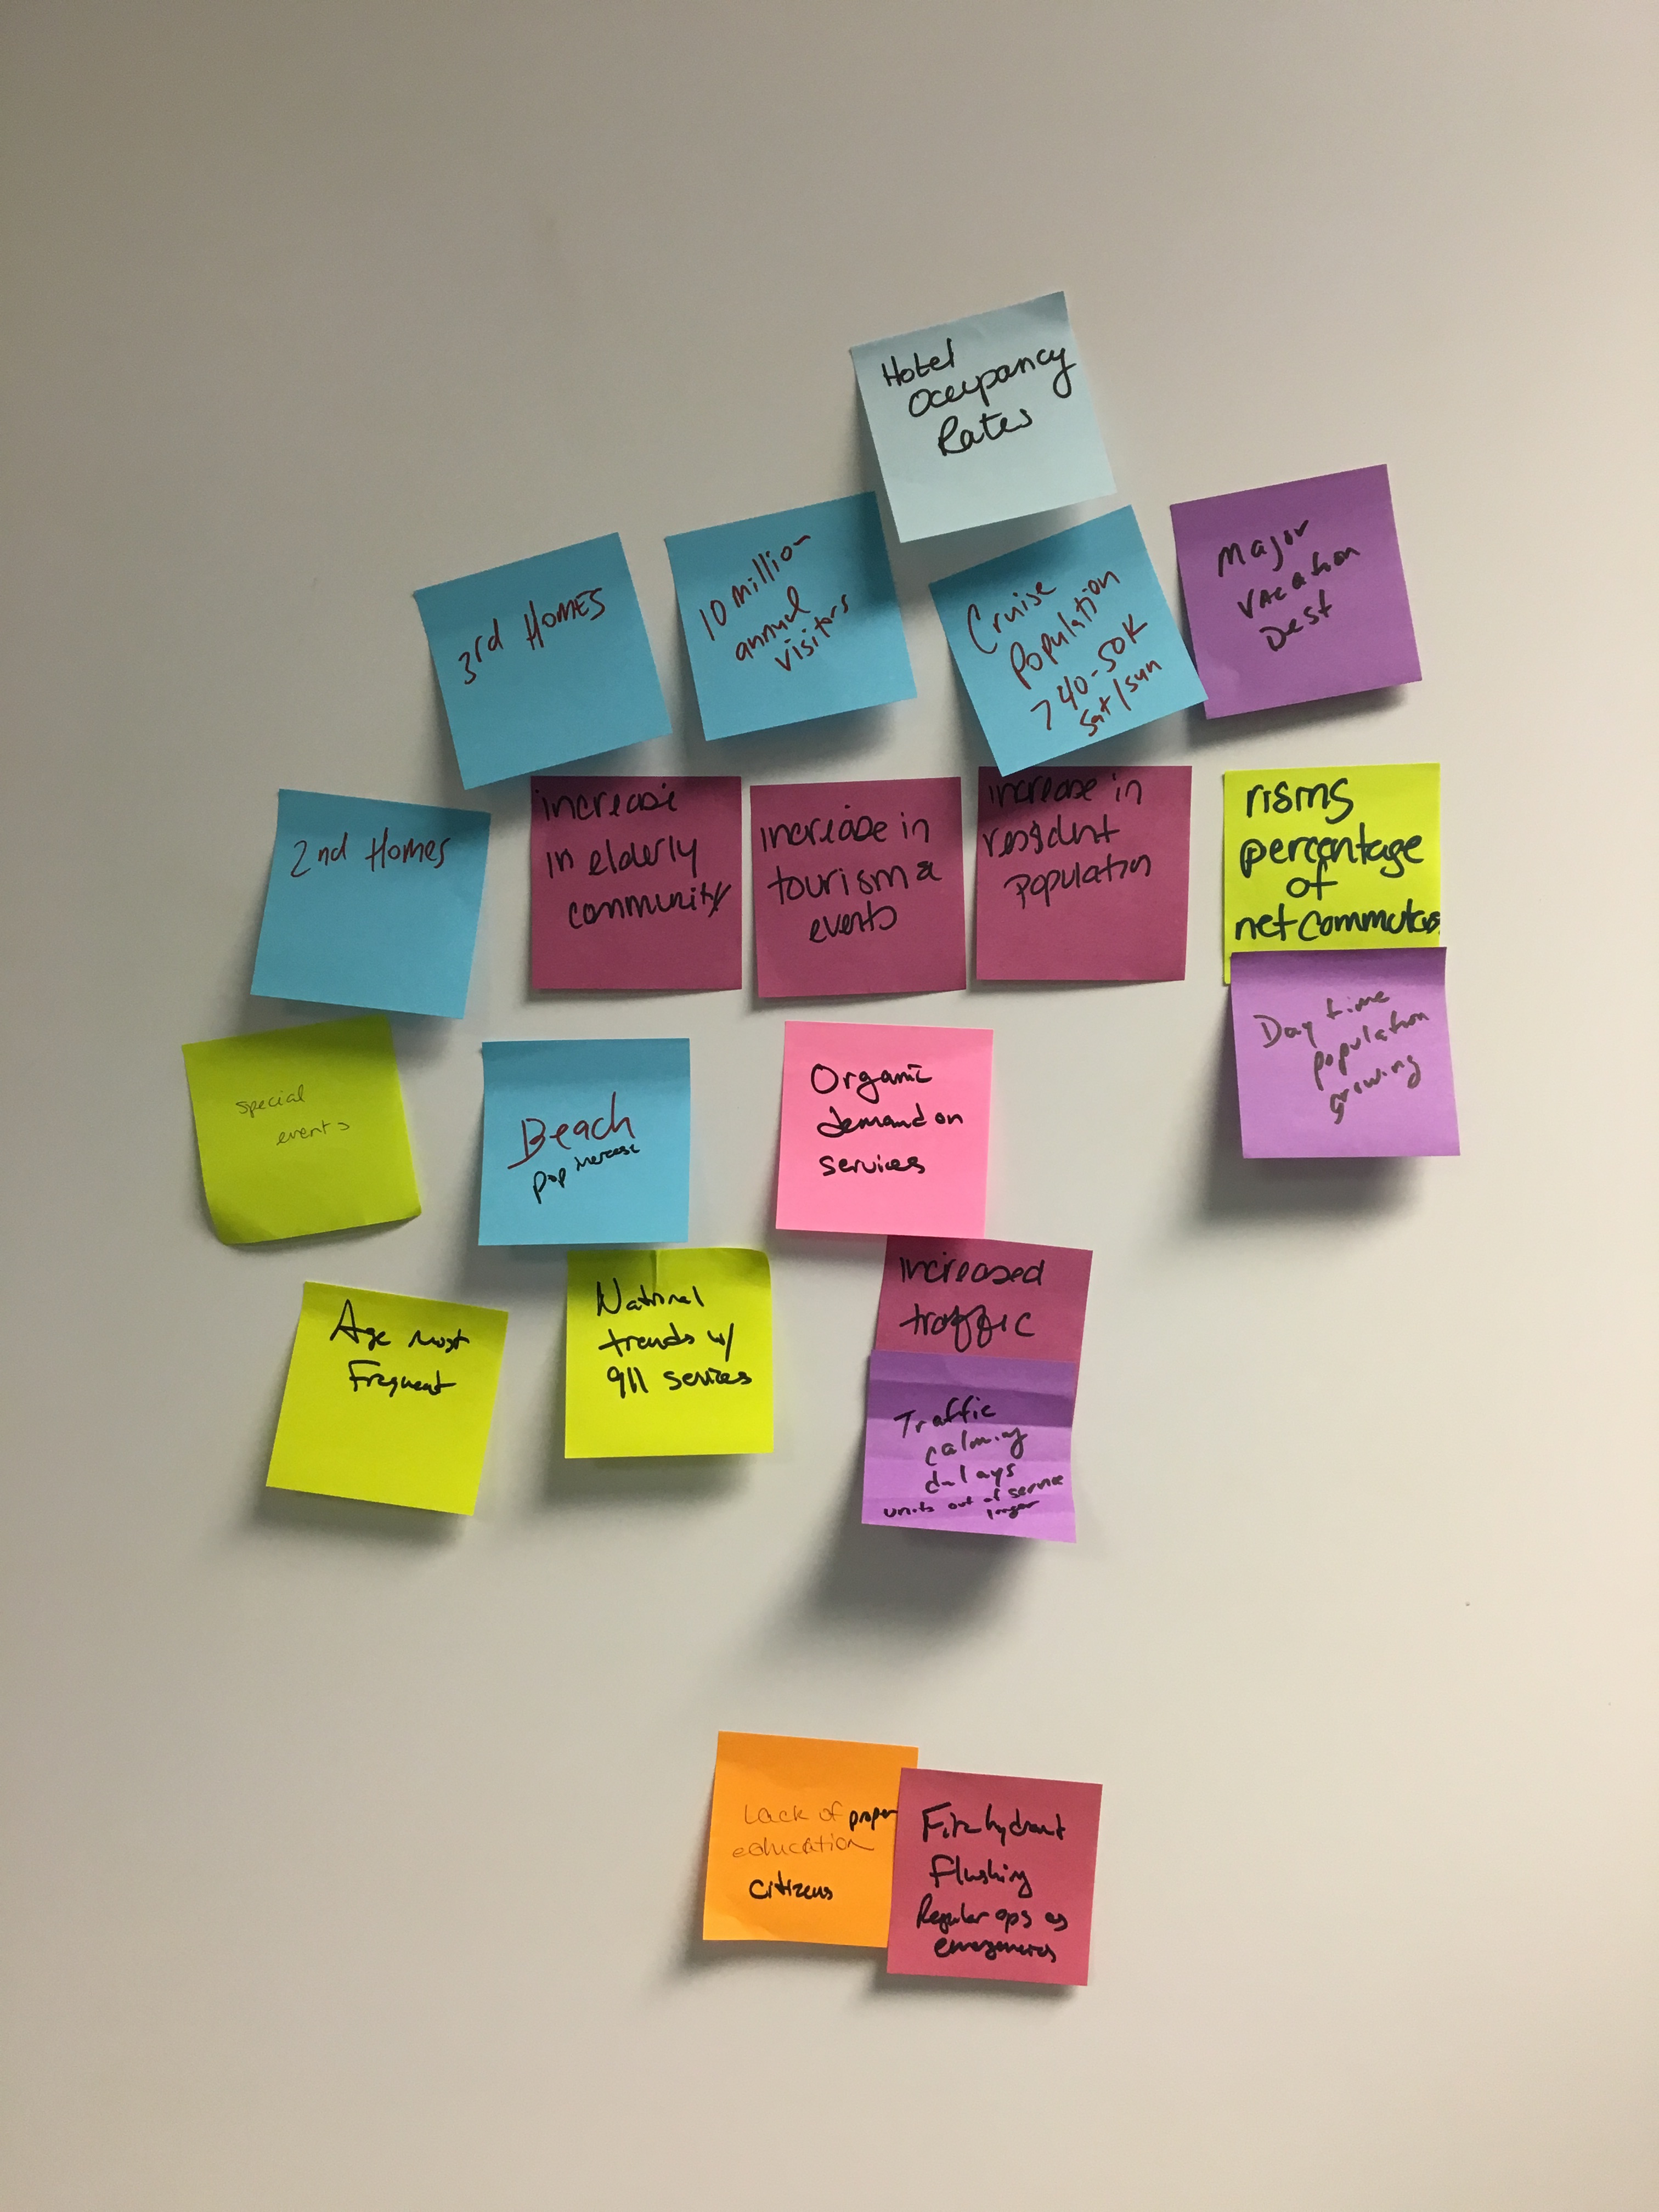 Hotel
Occupancy
Rates
3rd HOMES
10 million
annual
visitors
Cruise
Population
>40-50K
Sat/Sun
Major
VACation
Dest
2nd Homes
increase
in elderly
community
increase in
tourism &
events
increase in
resident
population
rising
percentage
of
net commuters
Day time
population
growing
special
events
Beach
pop increase
Organic
demand on
services
Age most
Frequent
National
trends w/
911 services
increased
traffic
Traffic
calming
delays
units out of service
longer
Lack of proper
education
citizens
Fire hydrant
flushing
Regular ops as
emergencies